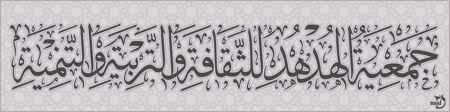 جَمْعِيَّةُ الْهُدْهُدِ لِلثَّقَافَةِ وَالتَّرْبِيَةِ وَالتَّنْمِيَةِ